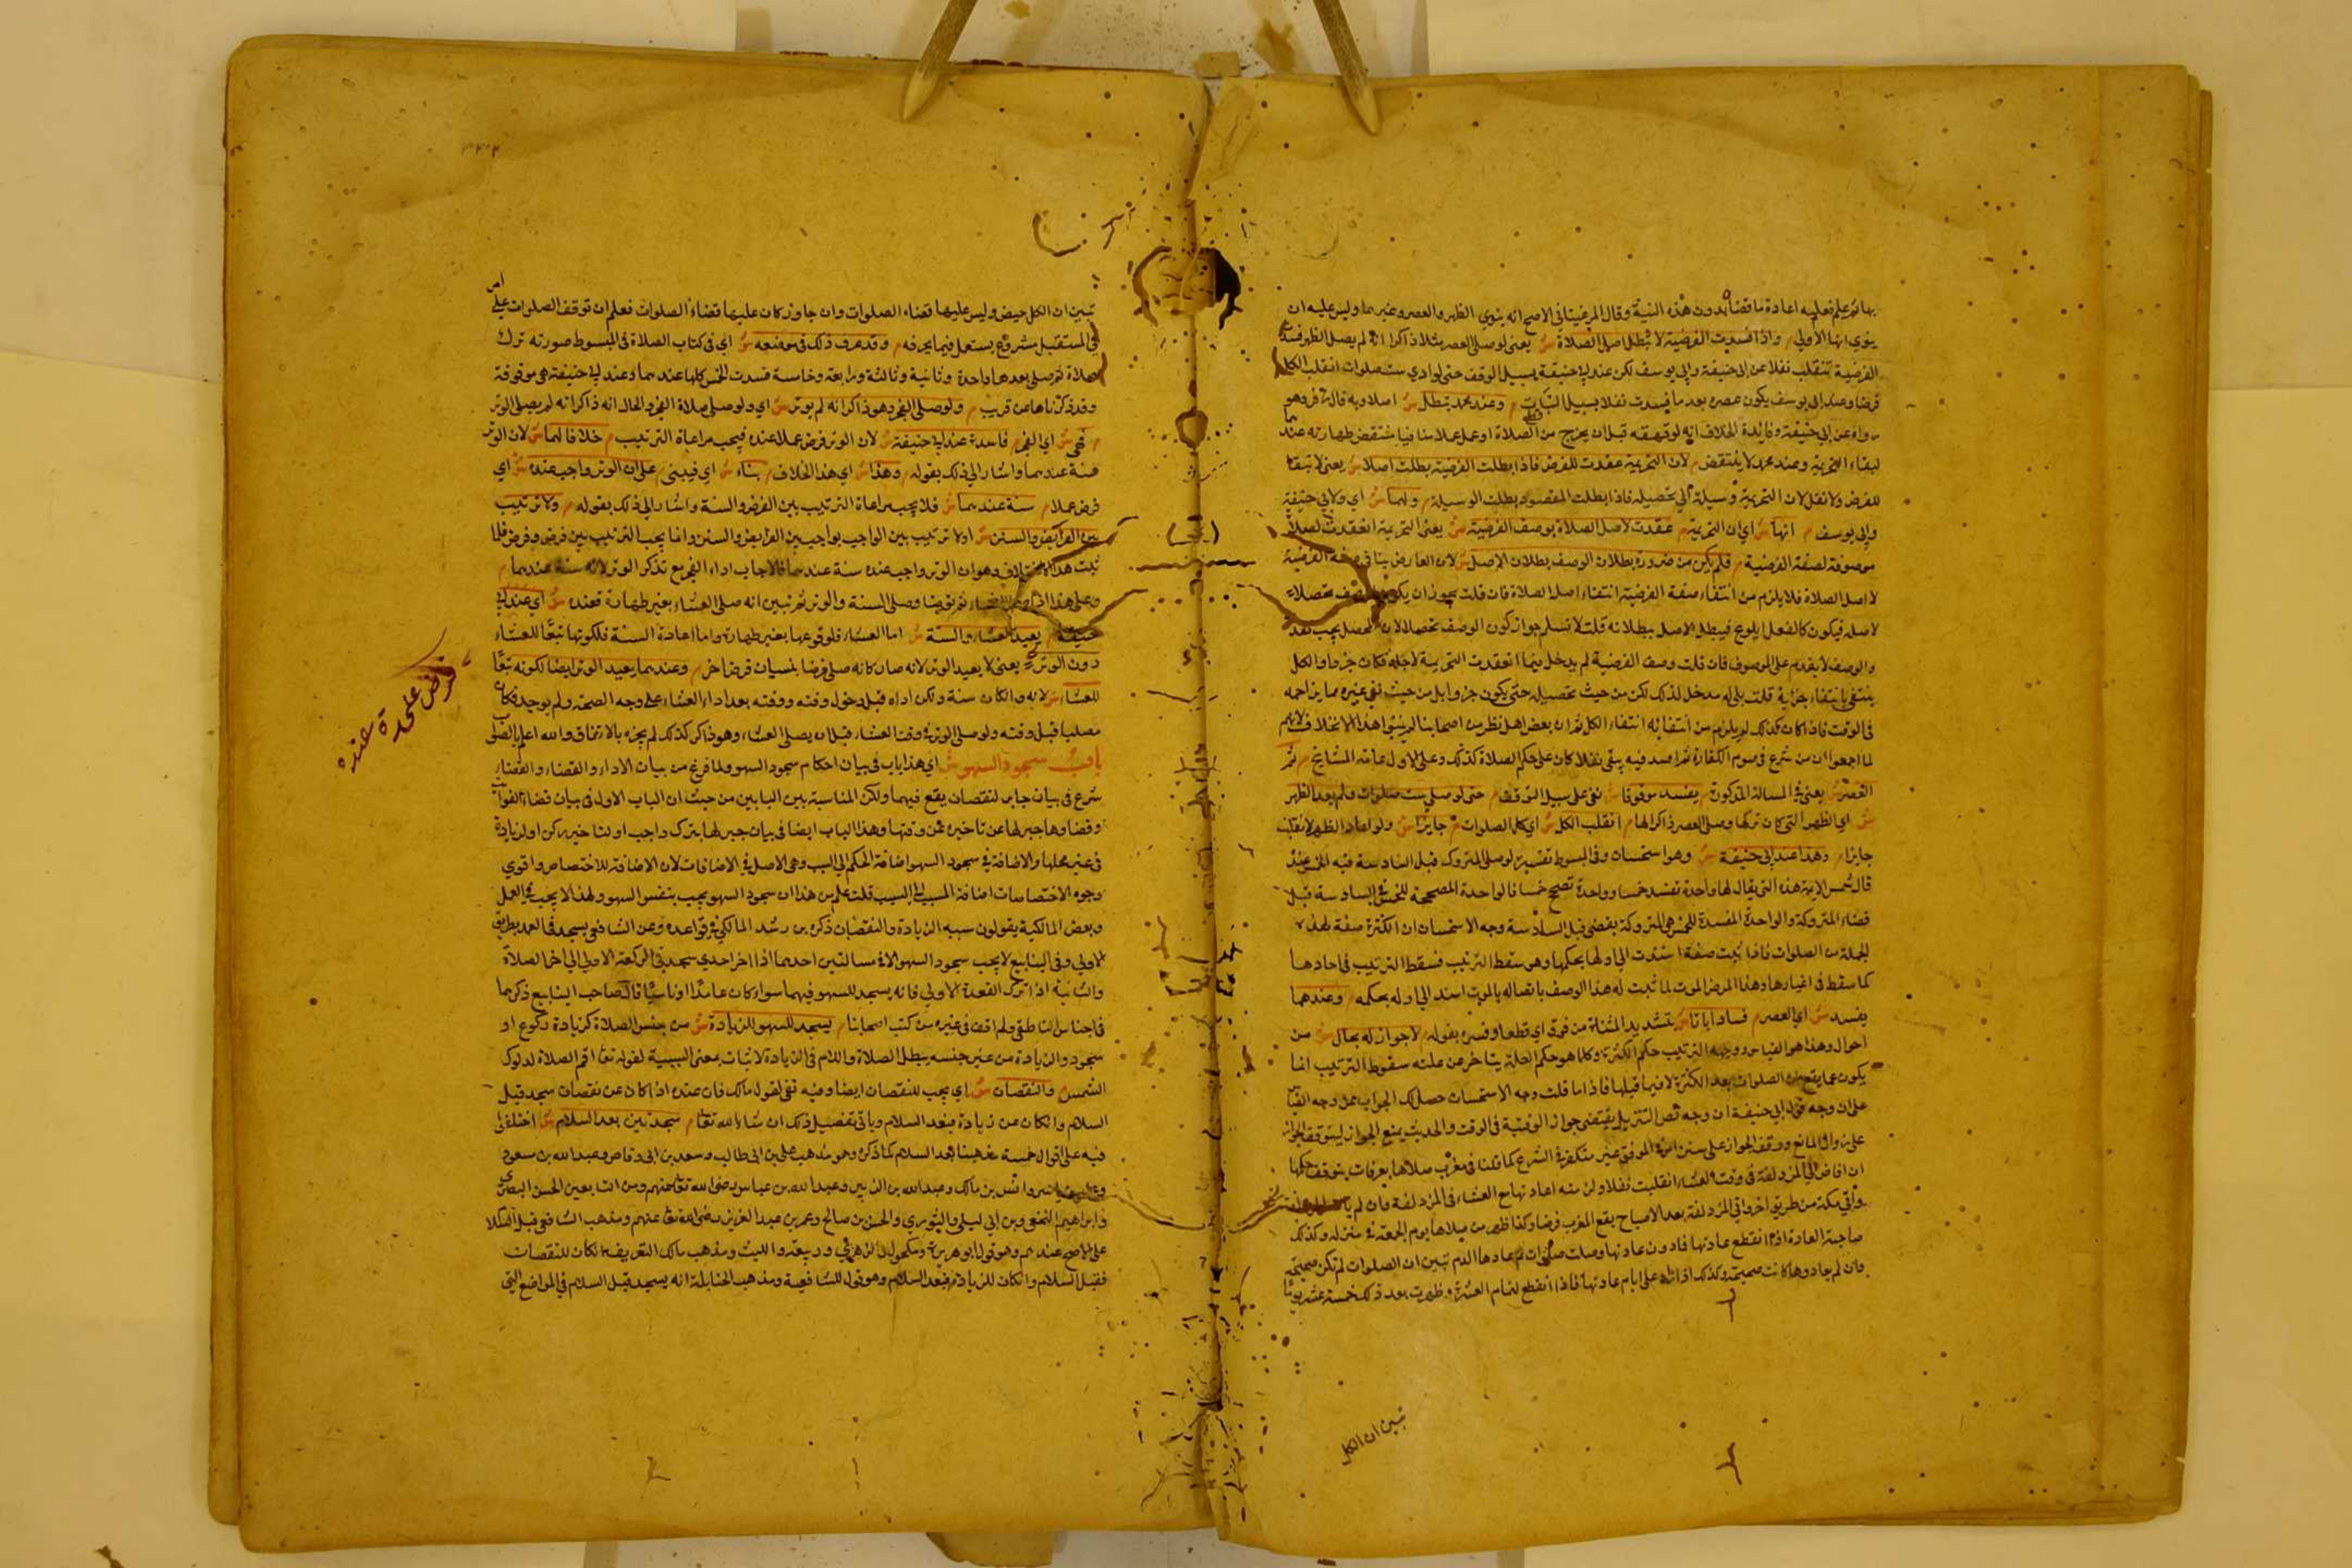 بها ثم علم فعليه اعادة ما قضاه بدون هذه النية وقال المرغيناني الاصح انه ينوي الظهر والعصر وغيرهما وليس عليه ان
ينوي انها الاولى م واذا فسدت الفرضية لا تبطل اصل الصلاة ش يعني لو صلى العصر مثلا ذاكرا انه لم يصل الظهر فسد
الفرضية تنقلب نفلا عن ابي حنيفة وابي يوسف لكن عند ابي حنيفة بسبيل الوقف حتى لو ادي ست صلوات انقلب الكل
فرضا وعند ابي يوسف يكون عصره بعد ما فسدت نفلا بسبيل الثبات م وعند محمد تبطل ش اصلا وبه قال زفر وهو
رواه عن ابي حنيفة وفائدة الخلاف انه لو قهقه قبل ان يخرج من الصلاة او عمل عملا منافيا تنتقض طهارته عندهما
لبقاء التحريمة وعند محمد لا ينتقض م لان التحريمة عقدت للفرض فاذا بطلت الفرضية بطلت اصلا ش يعني لا تبقا
للفرض ولا نفل لان التحريمة وسيلة الي تحصيله فاذا بطلت المقصود بطلت الوسيلة م ولهما ش اي ولابي حنيفة
وابي يوسف م انها ش اي ان التحريمة م عقدت لاصل الصلاة بوصف الفرضية ش يعني التحريمة انعقدت لصلاة
موصوفة لصفة الفرضية م فلم يكن من ضرورة بطلان الوصف بطلان الاصل ش لان العارض ينافي صفة الفرضية
لا اصل الصلاة فلا يلزم من انتفاء صفة الفرضية انتفاء اصل الصلاة فان قلت يجوز ان يكون الوصف محصلا
لاصله فيكون كالفعل ايلوج فيبطل الاصل ببطلانه قلت لا نسلم جواز كون الوصف محصلا لان المحصل يجب تقد
والوصف لا يقدم على الموصوف فان قلت وصف الفرضية لم يدخل فيما انعقدت التحريمة لاجله فكان جزءا والكل
ينتفي بانتفاء جزئية قلت بلى له مدخل لذلك لكن من حيث تحصيله حتى يكون جزءا بل من حيث نفي غيره مما يزاحمه
في الوقت فاذا كان كذلك لم يلزم من انتفائه انتفاء الكل ثم ان بعض اهل نظر من اصحابنا لم يثبتوا هذا الاختلاف لانهم
لما اجمعوا ان من شرع في صوم الكفارة ثم افسد فيه يبقى نفلا كان على حكم الصلاة كذلك وعلى الاول عامة المشايخ م ثم
العصر ش يعني في المسالة المذكورة م يفسد موقوفا ش نفي على سبيل التوقف م حتى لو صلي ست صلوات ولم يعد الظهر
ش اي الظهر التي كان تركها وصلى العصر ذاكرا لها م انقلب الكل ش اي كل الصلوات م جايزا ش ولو اعاد الظهر لا تنقلب
جايزا م وهذا عند ابي حنيفة ش وهو استحسان وفي المبسوط تفسيره لو صلى المتروك قبل السادسة فيه الخمس عند
قال شمس الايمة هذه التي يقال لها واحدة تفسد خمسا وواحدة تصحح خمسا فالواحدة المصححة للخمس في السادسة قبل
قضاء المتروكة والواحدة المفسدة للخمس هي المتروكة يقضى قبل السادسة وجه الاستحسان ان الكثرة صفة لهذه
الجملة من الصلوات فاذا ثبت صفة استندت الي اولها بحكمها وهي سقط الترتيب فسقط الترتيب في احادها
كما سقط في اغيارها وهذا المرض الموت لما ثبت له هذا الوصف باتصاله بالموت استند الي اوله بحكمه م وعندهما
يفسد ش اي العصر م فسادا باتا ش بتشديد المثناة من فوق اي قطعا وفسره بقوله م لا جواز له بحال ش من
احوال وهذا هو القياس ووجهه الترتيب حكم الكثرة وكلما هو حكم العلة يتاخر عن علته سقوط الترتيب انما
يكون عما يقع من الصلوات بعد الكثرة لا فيما قبلها فاذا ما قلت وجه الاستحسان حصل لك الجواب عن وجه القياس
على ان وجه قول ابي حنيفة ان وجه نص التنزيل يقتضي جواز الوقتية في الوقت والحديث يمنع الجواز ليتوقف الجواز
على زوال المانع ووقف الجواز على سنن المتوقف غير متكفر في الشرع كما قلنا في مغرب صلاها بعرفات يتوقف حكمها
ان افاض الي المزدلفة في وقت العشاء انقلبت نفلا ولزمته اعادتها مع العشاء في المزدلفة فان لم يات المزدلفة
واتي مكة من طريق اخر واتي المزدلفة بعد الاصباح يقع المغرب فرضا وكذا ظهر من صلاها يوم الجمعة في منزله وكذلك
صاحبة العادة اذا انقطع عادتها فادون عادتها وصلت صلوات ثم عادها الدم تبين ان الصلوات لم تكن صحيحة
وان لم يعاودها كانت صحيحة وكذلك اذا زاد على ايام عادتها فاذا انقطع لتمام العشرة وطهرت بعد ذلك خمسة عشر يوما
تبين ان الكل
تبين ان الكل حيض وليس عليها قضاء الصلوات وان جاوز كان عليها قضاء الصلوات فعلم ان توقف الصلوات على امر
في المستقبل مشروع يستعمل فيما يحرفه م وقد عرف ذلك في موضعه ش اي في كتاب الصلاة في المبسوط صورته ترك
صلاة ثم صلى بعدها واحدة وثانية وثالثة ورابعة وخامسة فسدت الخمس كلها عندهما وعند ابي حنيفة هي موقوفة
وقد ذكرناها عن قريب م ولو صلى الفجر وهو ذاكر انه لم يوتر ش اي ولو صلى صلاة الفجر والحال انه ذاكر انه لم يصل الوتر
م فهي ش اي الفجر م فاسدة عند ابي حنيفة ش لان الوتر فرض عملا عنده فيجب مراعاة الترتيب م خلافا لهما ش لان الوتر
سنة عندهما واشار الي ذلك بقوله م وهذا ش اي هذا الخلاف م بناء ش اي فيبني م على ان الوتر واجب عنده ش اي
فرض عملا م سنة عندهما ش فلا يجب مراعاة الترتيب بين الفرض والسنة واشار الي ذلك بقوله م ولا ترتيب
بين الفرايض والسنن ش اولا ترتيب بين الواجب بواجب بين الفرايض والسنن وانما يجب الترتيب بين فرض وفرض فلما
ثبت هذا الاختلاف وهو ان الوتر واجب عنده سنة عندهما فالاجاب اداء الفجر مع تذكر الوتر لانه سنة عندهما م
وعلى هذا اذا صلى العشاء ثم توضا وصلى السنة والوتر ثم تبين انه صلى العشاء بغير طهارة فعنده ش اي عند ابي
حنيفة م يعيد العشاء والسنة ش اما العشاء فلوقوعها بغير طهارة واما اعادة السنة فلكونها تبعا للعشاء
دون الوتر ش يعني لا يعيد الوتر لانه صار كانه صلى فرضا بنسيان فرض اخر م وعندهما يعيد الوتر ايضا لكونه تبعا
للعشاء ش لانه وان كان سنة ولكن اداه قبل دخول وقته ووقته بعد اداء العشاء على وجه الصحة ولم يوجد فكان
مصليا قبل وقته ولو صلى الوتر في وقت العشاء قبل ان يصلي العشاء وهو ذاكر كذلك لم يجزه بالاتفاق والله اعلم بالصواب
باب سجود السهو ش اي هذا باب في بيان احكام سجود السهو ولما فرغ من بيان الاداء والقضاء والقضاء
شرع في بيان جابر لنقصان يقع فيهما ولكن المناسبة بين البابين من حيث ان الباب الاول في بيان قضاء الفوايت
وقضاوها جبر لها عن تاخيره عن وقتها وهذا الباب ايضا في بيان جبر لها بترك واجب او لتاخير ركن او لزيادة
في غير محلها والاضافة في سجود السهو اضافة الحكم الي السبب وهي الاصل في الاضافات لان الاضافة للاختصاص واقوي
وجوه الاختصاصات اضافة المسبب الي السبب قلت علم من هذا ان سجود السهو يجب بنفس السهو ولهذا لا يجب في العمل
وبعض المالكية يقولون سببه الزيادة والنقصان ذكره بن رشد المالكي في قواعده وعن الشافعي يسجد في العمد بطريق
الاولي وفي الينابيع لا يجب سجود السهو الا في مسالتين احدهما اذا اخر احدي سجدتي الركعة الاولي الي اخر الصلاة
والثانية اذا ترك القعدة الاولي فانه يسجد للسهو فيهما سواء كان عامدا او ناسيا قال صاحب الينابيع ذكرهما
في اجناس الناطفي ولم اقف في غيره من كتب اصحابنا م يسجد للسهو للزيادة ش من جنس الصلاة كزيادة ركوع او
سجود والزيادة من غير جنسه يبطل الصلاة واللام في الزيادة لاثبات بمعنى السببية لقوله تعا اقم الصلاة لدلوك
الشمس م والنقصان ش اي يجب للنقصان ايضا وفيه نفي لقول مالك فان عنده اذا كان عن نقصان سجد قبل
السلام وان كان عن زيادة فبعد السلام وياتي تفصيل ذلك ان شاء الله تعا م سجدتين بعد السلام ش اختلفوا
فيه على اقوال خمسة مذهبنا بعد السلام كما ذكر وهو مذهب علي بن ابي طالب وسعد بن ابي وقاص وعبد الله بن مسعود
وعمار بن ياسر وانس بن مالك وعبد الله بن الزبير وعبد الله بن عباس رضي الله تعا عنهم ومن التابعين الحسن البصري
وابراهيم النخعي وبن ابي ليلى والثوري والحسن بن صالح وعمر بن عبد العزيز رضي الله تعا عنهم ومذهب الشافعي قبل السلام
على الاصح عندهم وهو قول ابو هريرة ومكحول والزهري وربيعة والليث ومذهب مالك التعريف ان كان للنقصان
فقبل السلام وان كان للزيادة فبعد السلام وهو قول للشافعية ومذهب الحنابلة انه يسجد قبل السلام في المواضع التي
فرض علي حدة عنده